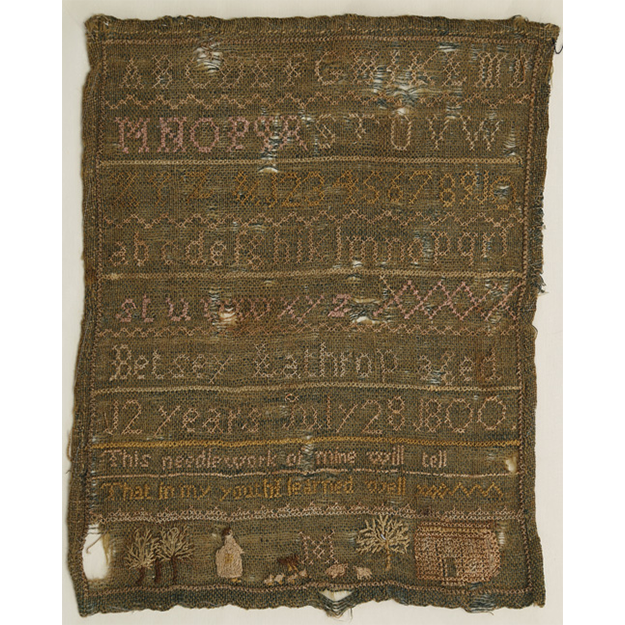 A B C D E F G H I K L M
M N O P Q R S T U V W
X Y Z & 1 2 3 4 5 6 7 8 9 10
a b c d e f g h i k l m n o p q r
s t u v w x y z
Betsey Lathrop aged
12 years July 28 1800
This needlework of mine will tell
That in my youth I learned well